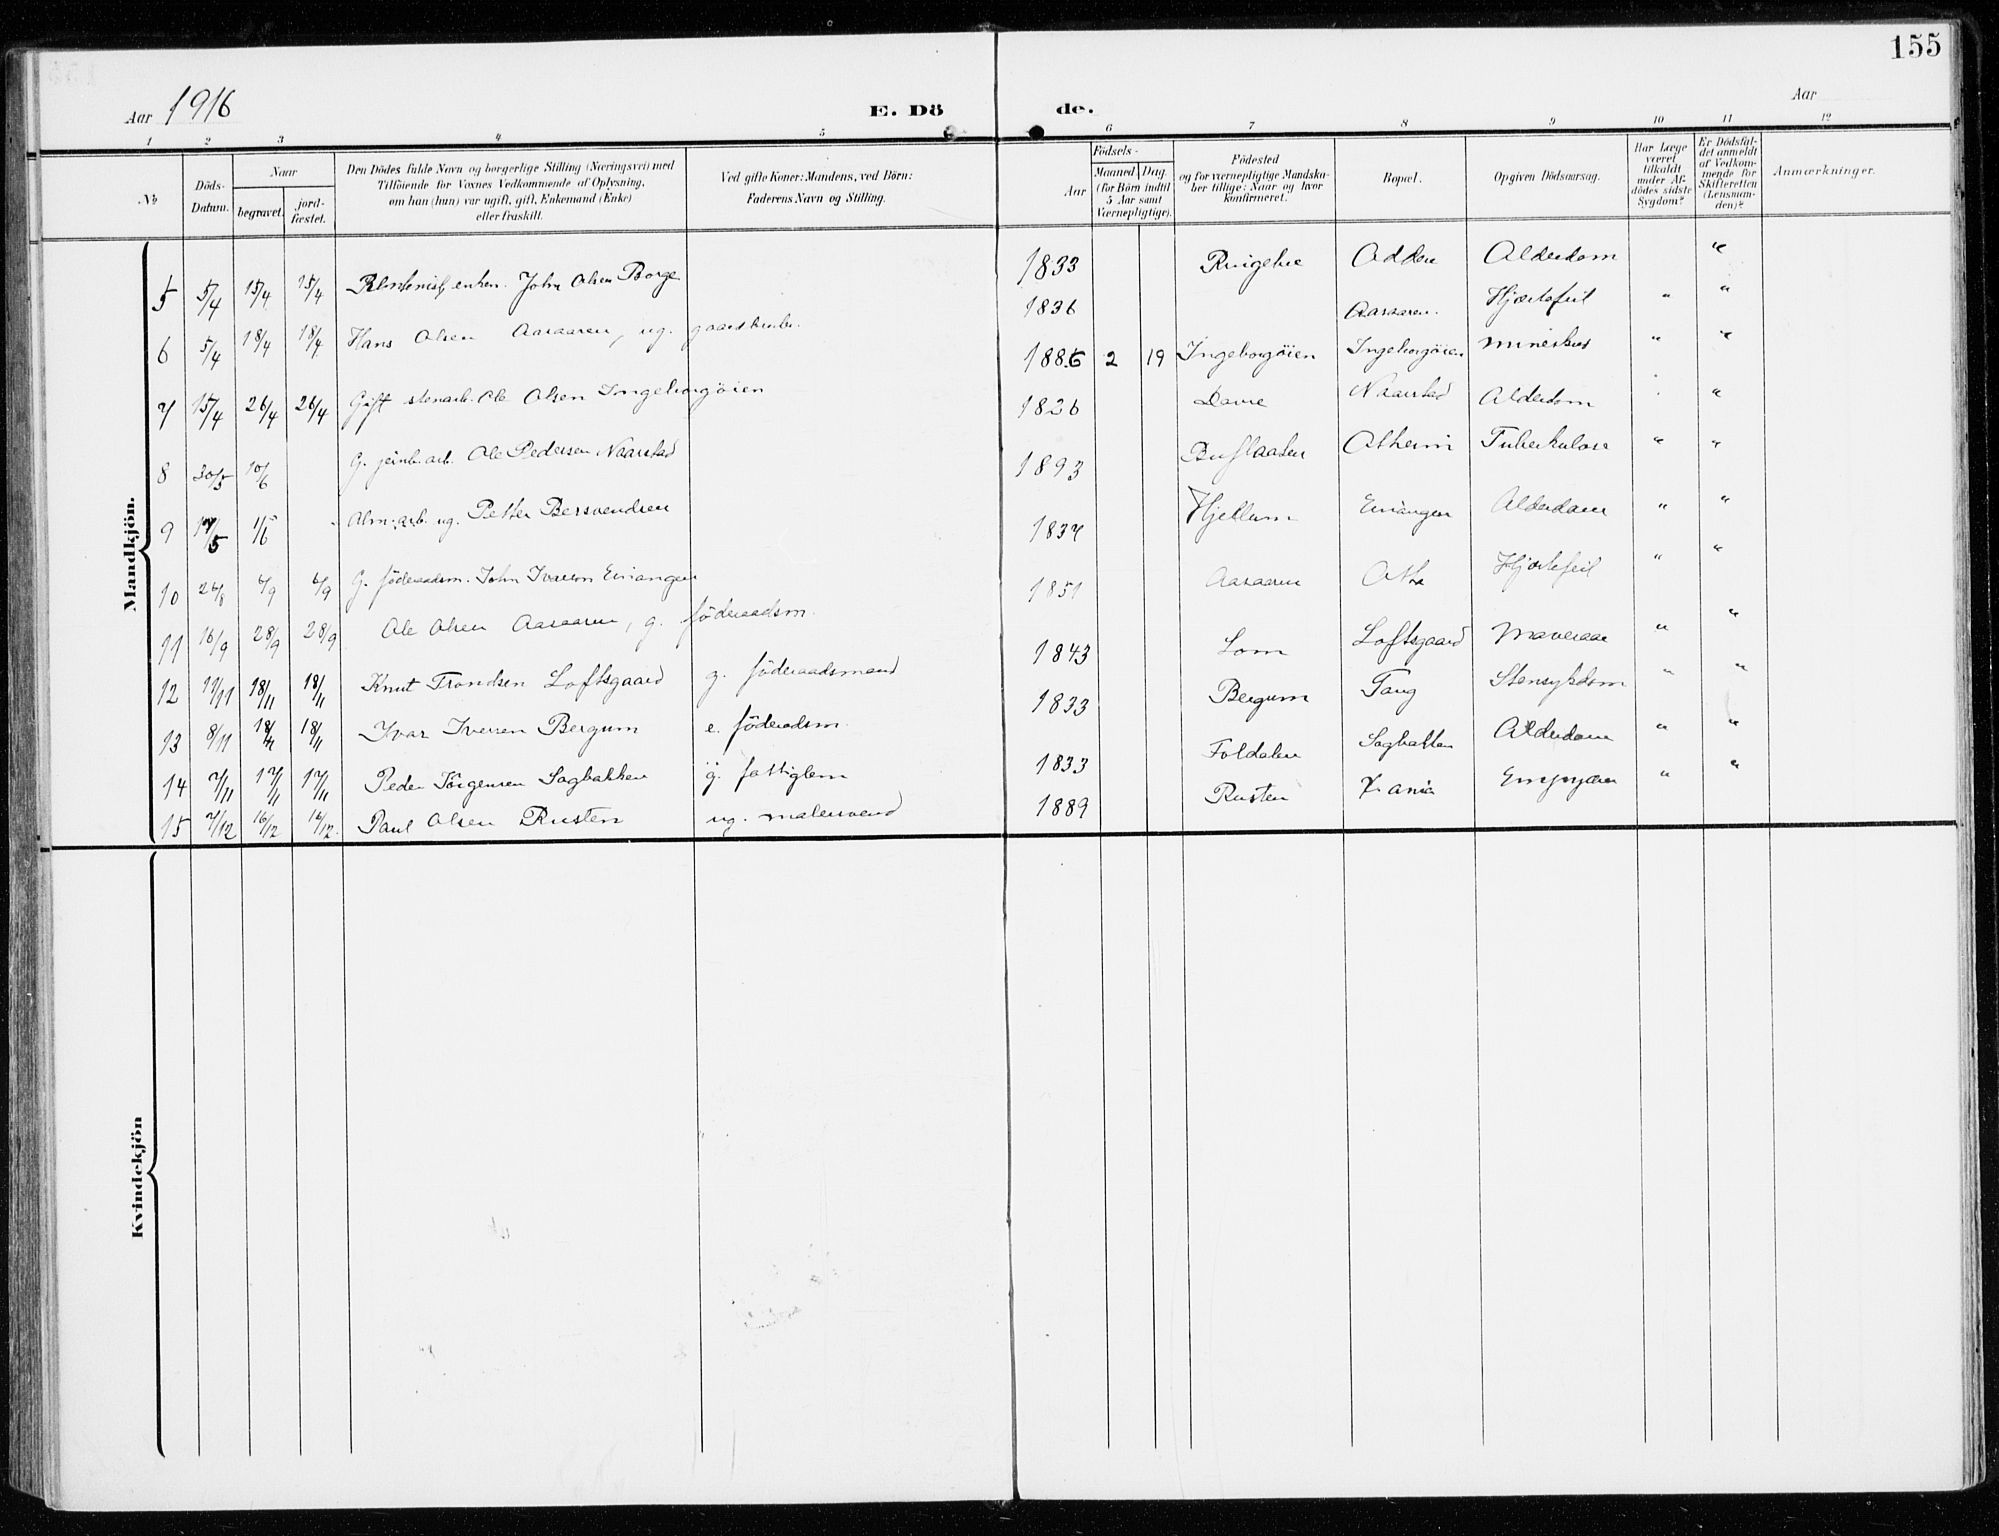 155
Aar 1916
E. Dö de.
Aar
1 2 3 4 5 6 7 8 9 10 11 12
No
Döds-Datum.
Naar
begravet.
jord-fæstet.
Den Dödes fulde Navn og borgerlige Stilling (Næringsvei) med
Tilföiende for Voxnes Vedkommende af Oplysning,
om han (hun) var ugift, gift, Enkemand (Enke)
eller fraskilt.
Ved gifte Koner: Mandens, ved Börn:
Faderens Navn og Stilling.
Födsels-
Aar
Maaned Dag
(for Börn indtil
5 Aar samt
Værnepligtige).
Födested
og for værnepligtige Mandska-
ber tillige: Naar og hvor
konfirmeret.
Bopæl.
Opgiven Dödsaarsag.
Har Læge
været
tilkaldt
under Af-
dödes sidste
Sygdom?
Er Dödsfal-
det anmeldt
af Vedkom-
mende for
Skifteretten
(Lensman-
den)?
Anmærkninger.
Mandkjön.
5 5/4 15/4 15/4 enkem. John Olsen Borge 1833 Ringebu Alderdom "
6 5/4 18/4 18/4 Hans Olsen Aasaaren, ug. 1836 Aasaaren. Hjertefeil " "
7 15/4 26/4 26/4 Gift stenarb. Ole Olsen Ingeborgöien 1886 2 19 Ingeborgöien Ingeborgöien mineskud " "
8 30/5 10/6 G. jernb.arb. Ole Pedersen Naarstad 1826 Dovre Naarstad Alderdom "
9 17/5 1/6 Alm. arb. ug. Petter Bersvendsen 1893 Tuberkulose " "
10 26/8 6/9 6/9 G. föderaadsm. John Iversen 1834 Hjellum Alderdom " "
11 16/9 28/9 28/9 Ole Olsen Aasaaren, g. föderaadsm. 1851 Aasaaren Hjertefeil " "
12 11/11 18/11 18/11 Knut Trondsen Loftsgaard g. föderaadsmand 1843 Lom Loftsgaard " "
13 8/11 18/11 18/11 Ivar Iversen Bergum e. föderaadsm. 1833 Bergum Tang " "
14 7/11 17/11 17/11 Peder Jörgensen Sagbakken g. fattiglem 1833 Foldalen Sagbakken Alderdom " "
15 7/12 16/12 16/12. Paul Olsen Rusten ug. malersvend 1889 Rusten " "
Kvindekjön